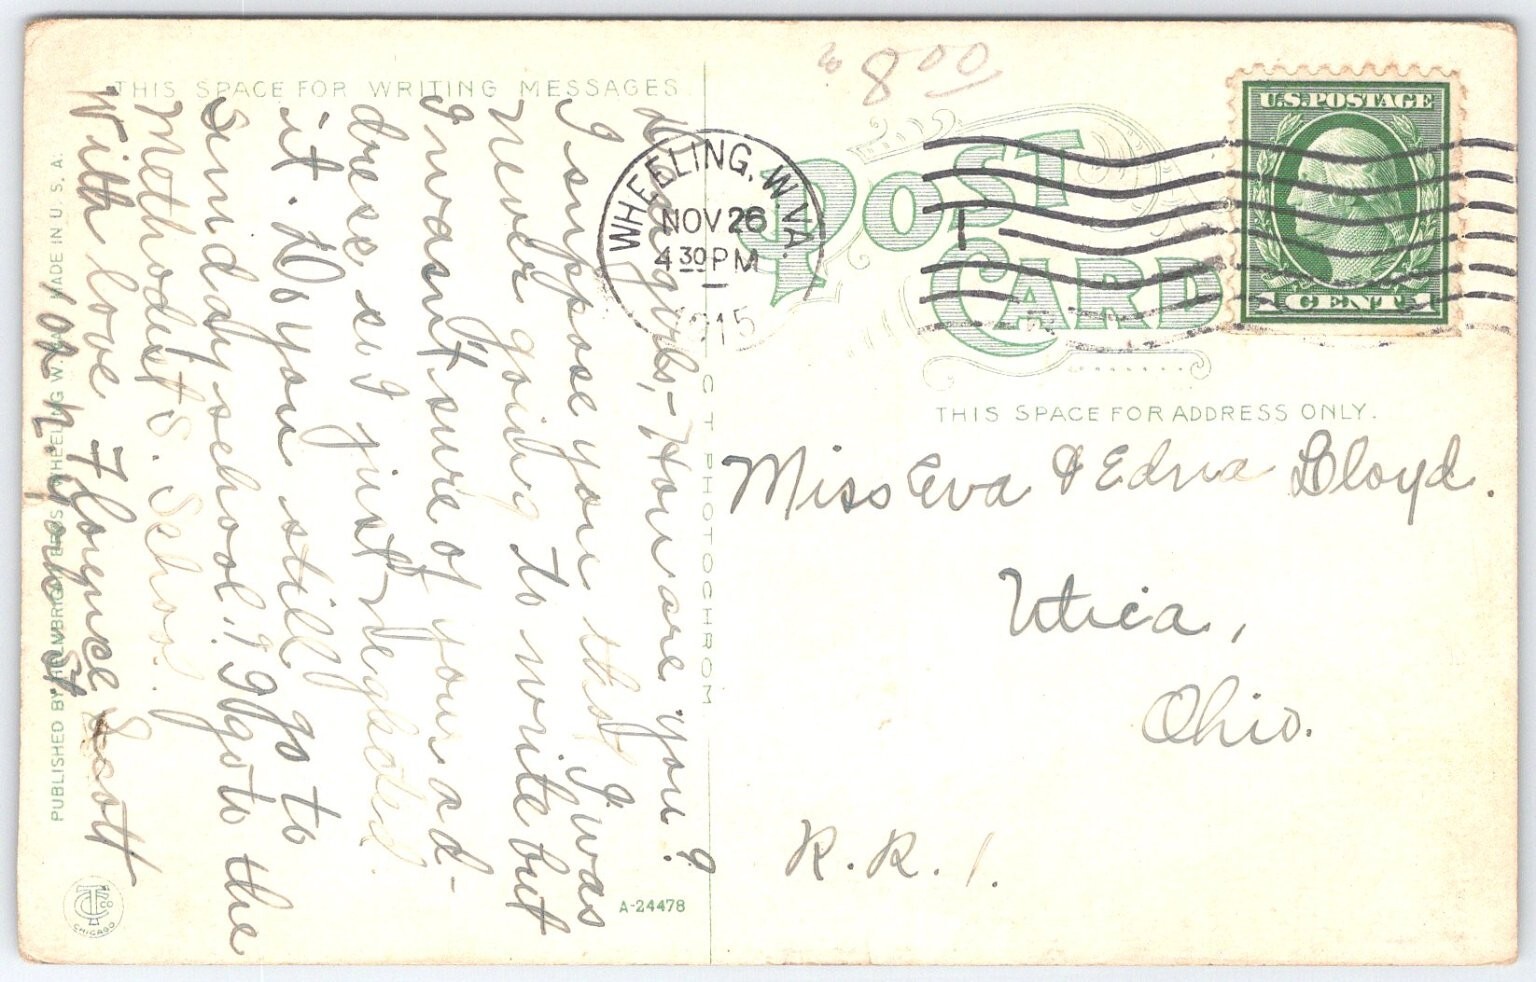 $8.00
THIS SPACE FOR WRITING MESSAGES
Dear girls,- How are you?
I suppose you that I was
never going to write but
I wasn't sure of your ad-
dress so I just neglected
it. Do you still go to
Sunday school? I go to the
Methodist S. School.
With love Florence Scott
PUBLISHED BY HELMBRIGHT BROS WHEELING W. VA. MADE IN U. S. A.
CHICAGO
A-24478
C T PHOTOCHROM
WHEELING, W. VA.
NOV 26
4 30 PM
1915
1
POST
CARD
U.S. POSTAGE
1 CENT 1
THIS SPACE FOR ADDRESS ONLY.
Miss Eva & Edna Lloyd.
Utica,
Ohio.
R. R. 1.